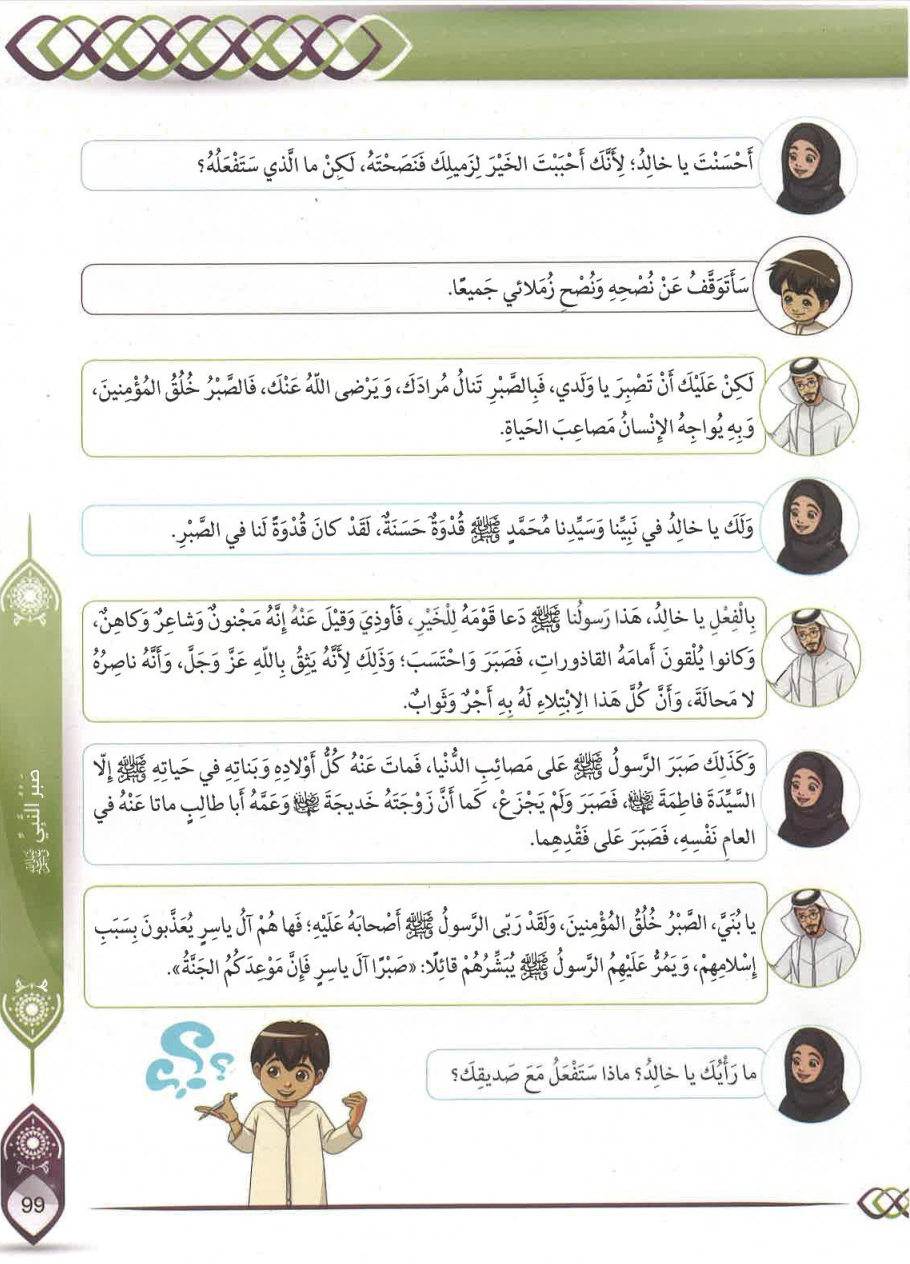 أَحْسَنْتَ يا خالِدُ؛ لِأَنَّكَ أَحْبَبْتَ الخَيْرَ لِزَميلِكَ فَنَصَحْتَهُ، لَكِنْ ما الَّذي سَتَفْعَلُهُ؟
سَأَتَوَقَّفُ عَنْ نُصْحِهِ وَنُصْحِ زُمَلائي جَميعًا.
لَكِنْ عَلَيْكَ أَنْ تَصْبِرَ يا وَلَدي، فَبِالصَّبْرِ تَنالُ مُرادَكَ، وَيَرْضى اللّهُ عَنْكَ، فَالصَّبْرُ خُلُقُ المُؤْمِنينَ،
وَبِهِ يُواجِهُ الإِنْسانُ مَصاعِبَ الحَياةِ.
وَلَكَ يا خالِدُ في نَبِيِّنا وَسَيِّدِنا مُحَمَّدٍ ﷺ قُدْوَةٌ حَسَنَةٌ، لَقَدْ كانَ قُدْوَةً لَنا في الصَّبْرِ.
بِالْفِعْلِ يا خالِدُ، هَذا رَسولُنا ﷺ دَعا قَوْمَهُ لِلْخَيْرِ، فَأُوذِيَ وَقيْلَ عَنْهُ إِنَّهُ مَجْنونٌ وَشاعِرٌ وَكاهِنٌ،
وَكانوا يُلْقونَ أَمامَهُ القاذوراتِ، فَصَبَرَ وَاحْتَسَبَ؛ وَذَلِكَ لِأَنَّهُ يَثِقُ بِاللّهِ عَزَّ وَجَلَّ، وَأَنَّهُ ناصِرُهُ
لا مَحالَةَ، وَأَنَّ كُلَّ هَذا الِابْتِلاءِ لَهُ بِهِ أَجْرٌ وَثَوابٌ.
وَكَذَلِكَ صَبَرَ الرَّسولُ ﷺ عَلى مَصائِبِ الدُّنْيا، فَماتَ عَنْهُ كُلُّ أَوْلادِهِ وَبَناتِهِ في حَياتِهِ ﷺ إِلّا
السَّيِّدَةَ فاطِمَةَ، فَصَبَرَ وَلَمْ يَجْزَعْ، كَما أَنَّ زَوْجَتَهُ خَديجَةَ وَعَمَّهُ أَبا طالِبٍ ماتا عَنْهُ في
العامِ نَفْسِهِ، فَصَبَرَ عَلى فَقْدِهِما.
يا بُنَيَّ، الصَّبْرُ خُلُقُ المُؤْمِنينَ، وَلَقَدْ رَبّى الرَّسولُ ﷺ أَصْحابَهُ عَلَيْهِ؛ فَها هُمْ آلُ ياسِرٍ يُعَذَّبونَ بِسَبَبِ
إِسْلامِهِمْ، وَيَمُرُّ عَلَيْهِمُ الرَّسولُ ﷺ يُبَشِّرُهُمْ قائِلًا: «صَبْرًا آلَ ياسِرٍ فَإِنَّ مَوْعِدَكُمُ الجَنَّةُ».
ما رَأْيُكَ يا خالِدُ؟ ماذا سَتَفْعَلُ مَعَ صَديقِكَ؟
صَبْرُ النَّبِيِّ ﷺ
99